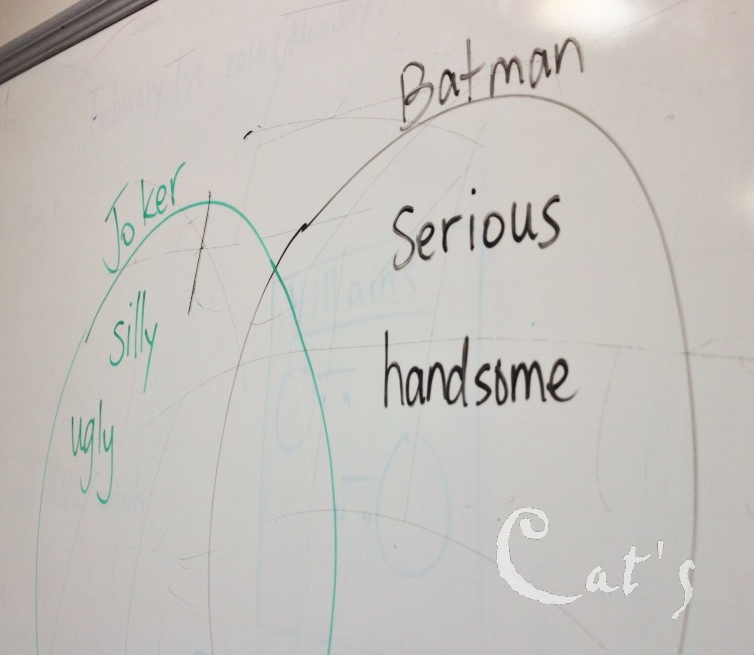 Batman
Joker
Serious
silly
handsome
ugly
Villains
Cat's